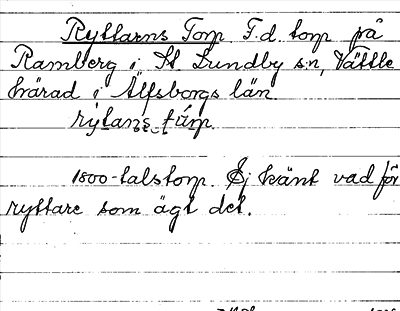 Ryttarns Torp F.d. torp på
Ramberg i St Lundby sn, Vättle
härad i Älfsborgs län.
rýtans túrp.
1800-talstorp. Ej känt vad för
ryttare som ägt det.